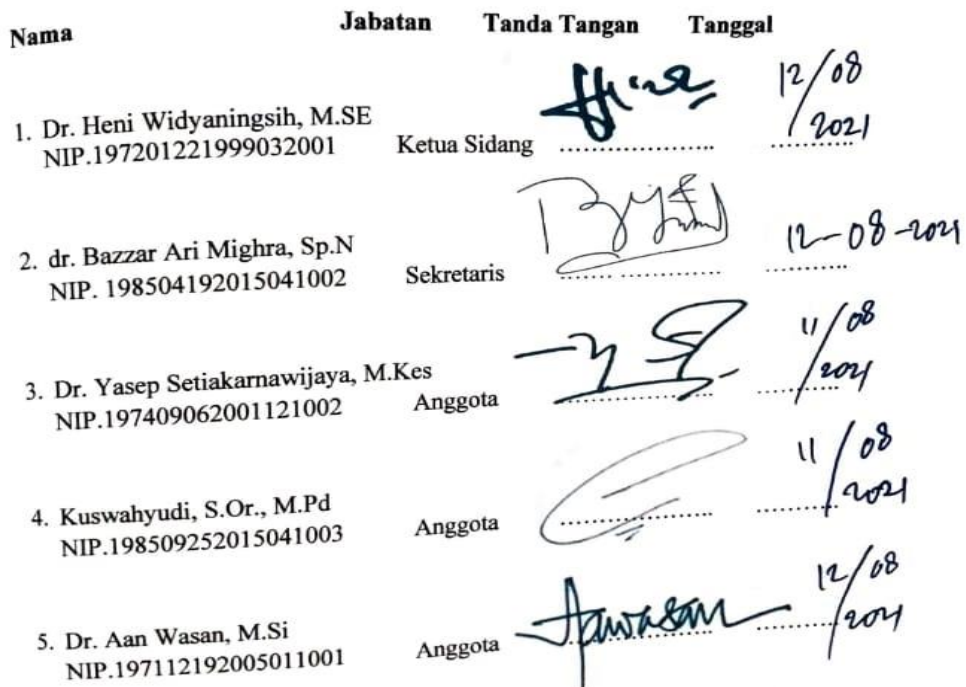 Nama Jabatan Tanda Tangan Tanggal
1. Dr. Heni Widyaningsih, M.SE
NIP.197201221999032001 Ketua Sidang .................... 12/08
2021
2. dr. Bazzar Ari Mighra, Sp.N
NIP. 198504192015041002 Sekretaris .................... 12-08-2021
3. Dr. Yasep Setiakarnawijaya, M.Kes
NIP.197409062001121002 Anggota .................... 11/08
2021
4. Kuswahyudi, S.Or., M.Pd
NIP.198509252015041003 Anggota .................... 11/08
2021
5. Dr. Aan Wasan, M.Si
NIP.197112192005011001 Anggota Aawasan 12/08
2021